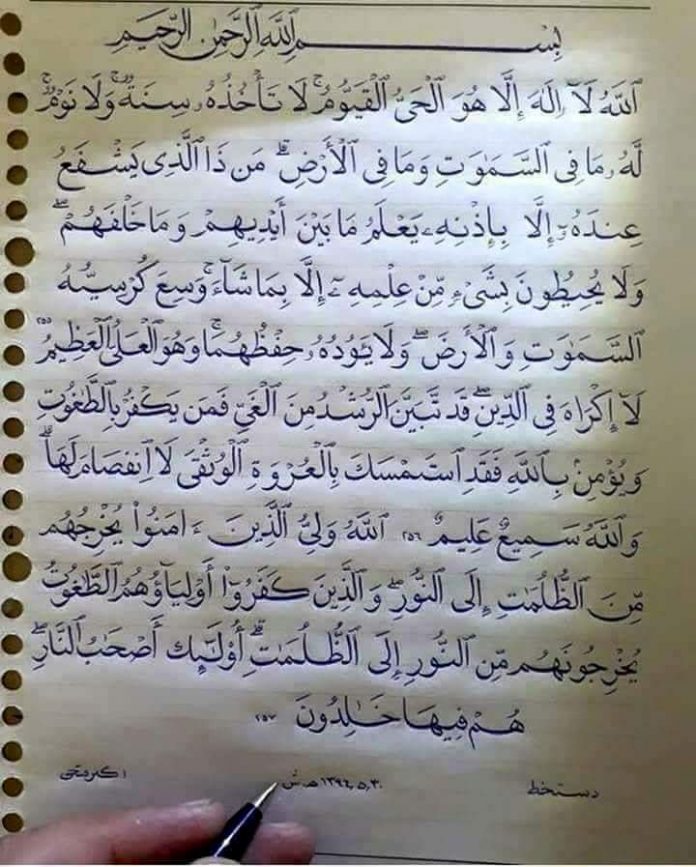 بِسْمِ اللَّهِ الرَّحْمَٰنِ الرَّحِيمِ
اَللَّهُ لَآ إِلَٰهَ إِلَّا هُوَ الْحَىُّ الْقَيُّومُ ۚ لَا تَأْخُذُهُۥ سِنَةٌ وَلَا نَوْمٌ ۚ
لَّهُۥ مَا فِى السَّمَٰوَٰتِ وَمَا فِى الْأَرْضِ ۗ مَن ذَا الَّذِى يَشْفَعُ
عِندَهُۥٓ إِلَّا بِإِذْنِهِۦ يَعْلَمُ مَا بَيْنَ أَيْدِيهِمْ وَمَا خَلْفَهُمْ ۖ
وَلَا يُحِيطُونَ بِشَىْءٍ مِّنْ عِلْمِهِۦٓ إِلَّا بِمَا شَآءَ ۚ وَسِعَ كُرْسِيُّهُ
السَّمَٰوَٰتِ وَالْأَرْضَ ۖ وَلَا يَـُٔودُهُۥ حِفْظُهُمَا ۚ وَهُوَ الْعَلِىُّ الْعَظِيمُ ٢٥٥
لَآ إِكْرَاهَ فِى الدِّينِ ۖ قَد تَّبَيَّنَ الرُّشْدُ مِنَ الْغَىِّ ۚ فَمَن يَكْفُرْ بِالطَّٰغُوتِ
وَيُؤْمِنۢ بِاللَّهِ فَقَدِ اسْتَمْسَكَ بِالْعُرْوَةِ الْوُثْقَىٰ لَا انفِصَامَ لَهَا ۗ
وَاللَّهُ سَمِيعٌ عَلِيمٌ ٢٥٦ اَللَّهُ وَلِىُّ الَّذِينَ ءَامَنُوا۟ يُخْرِجُهُم
مِّنَ الظُّلُمَٰتِ إِلَى النُّورِ ۖ وَالَّذِينَ كَفَرُوٓا۟ أَوْلِيَآؤُهُمُ الطَّٰغُوتُ
يُخْرِجُونَهُم مِّنَ النُّورِ إِلَى الظُّلُمَٰتِ ۗ أُو۟لَٰٓئِكَ أَصْحَٰبُ النَّارِ ۖ
هُمْ فِيهَا خَٰلِدُونَ ٢٥٧
دستخط ۱۳۹۴٫۵٫۳۰ ه‍.ش اکبر فتحی